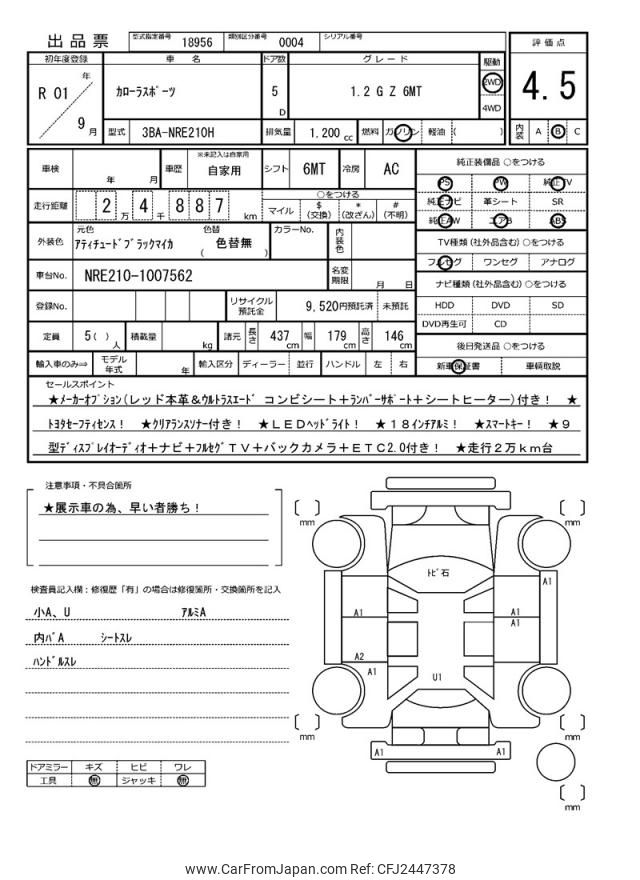 出品票 型式指定番号 18956 類別区分番号 0004 シリアル番号
評価点
4.5
内装 A B C
初年度登録 車名 ドア数 グレード 駆動
R 01 年 9 月 カローラスポーツ 5 D 1.2 G Z 6MT 2WD 4WD
型式 3BA-NRE210H 排気量 1,200 cc 燃料 ガソリン 軽油 ( )
車検 年 月 車歴 ※未記入は自家用 自家用 シフト 6MT 冷房 AC
走行距離 2 万 4 千 8 8 7 km ○をつける
マイル $ (交換) * (改ざん) # (不明)
外装色 元色 アティチュードブラックマイカ 色替 ( 色替無 ) カラーNo. 内装色
車台No. NRE210-1007562 名変期限 月 日
登録No. リサイクル預託金 9,520円預託済 未預託
定員 5( ) 人 積載量 kg 諸元 長さ 437 cm 幅 179 cm 高さ 146 cm
輸入車のみ⇒ モデル年式 年 輸入区分 ディーラー 並行 ハンドル 左 右
純正装備品 ○をつける
PS PW 純正TV
純正ナビ 革シート SR
純正AW エアB ABS
TV種類 (社外品含む) ○をつける
フルセグ ワンセグ アナログ
ナビ種類 (社外品含む) ○をつける
HDD DVD SD
DVD再生可 CD
後日発送品 ○をつける
新車保証書 車輌取説
セールスポイント
★メーカーオプション(レッド本革＆ウルトラスエード コンビシート＋ランバーサポート＋シートヒーター)付き！ ★
トヨタセーフティセンス！ ★クリアランスソナー付き！ ★ＬＥＤヘッドライト！ ★１８インチアルミ！ ★スマートキー！ ★９
型ディスプレイオーディオ＋ナビ＋フルセグＴＶ＋バックカメラ＋ＥＴＣ2.0付き！ ★走行２万ｋｍ台
注意事項・不具合箇所
★展示車の為、早い者勝ち！
検査員記入欄：修復歴「有」の場合は修復箇所・交換箇所を記入
小A、U アルミA
内バA シートスレ
ハンドルスレ
ドアミラー キズ ヒビ ワレ
工具 無 ジャッキ 無
mm
mm
トビ石
A1
A1
A1
A1
A2
A1
U1
mm
mm
A1
A1
mm
www.CarFromJapan.com Ref: CFJ2447378